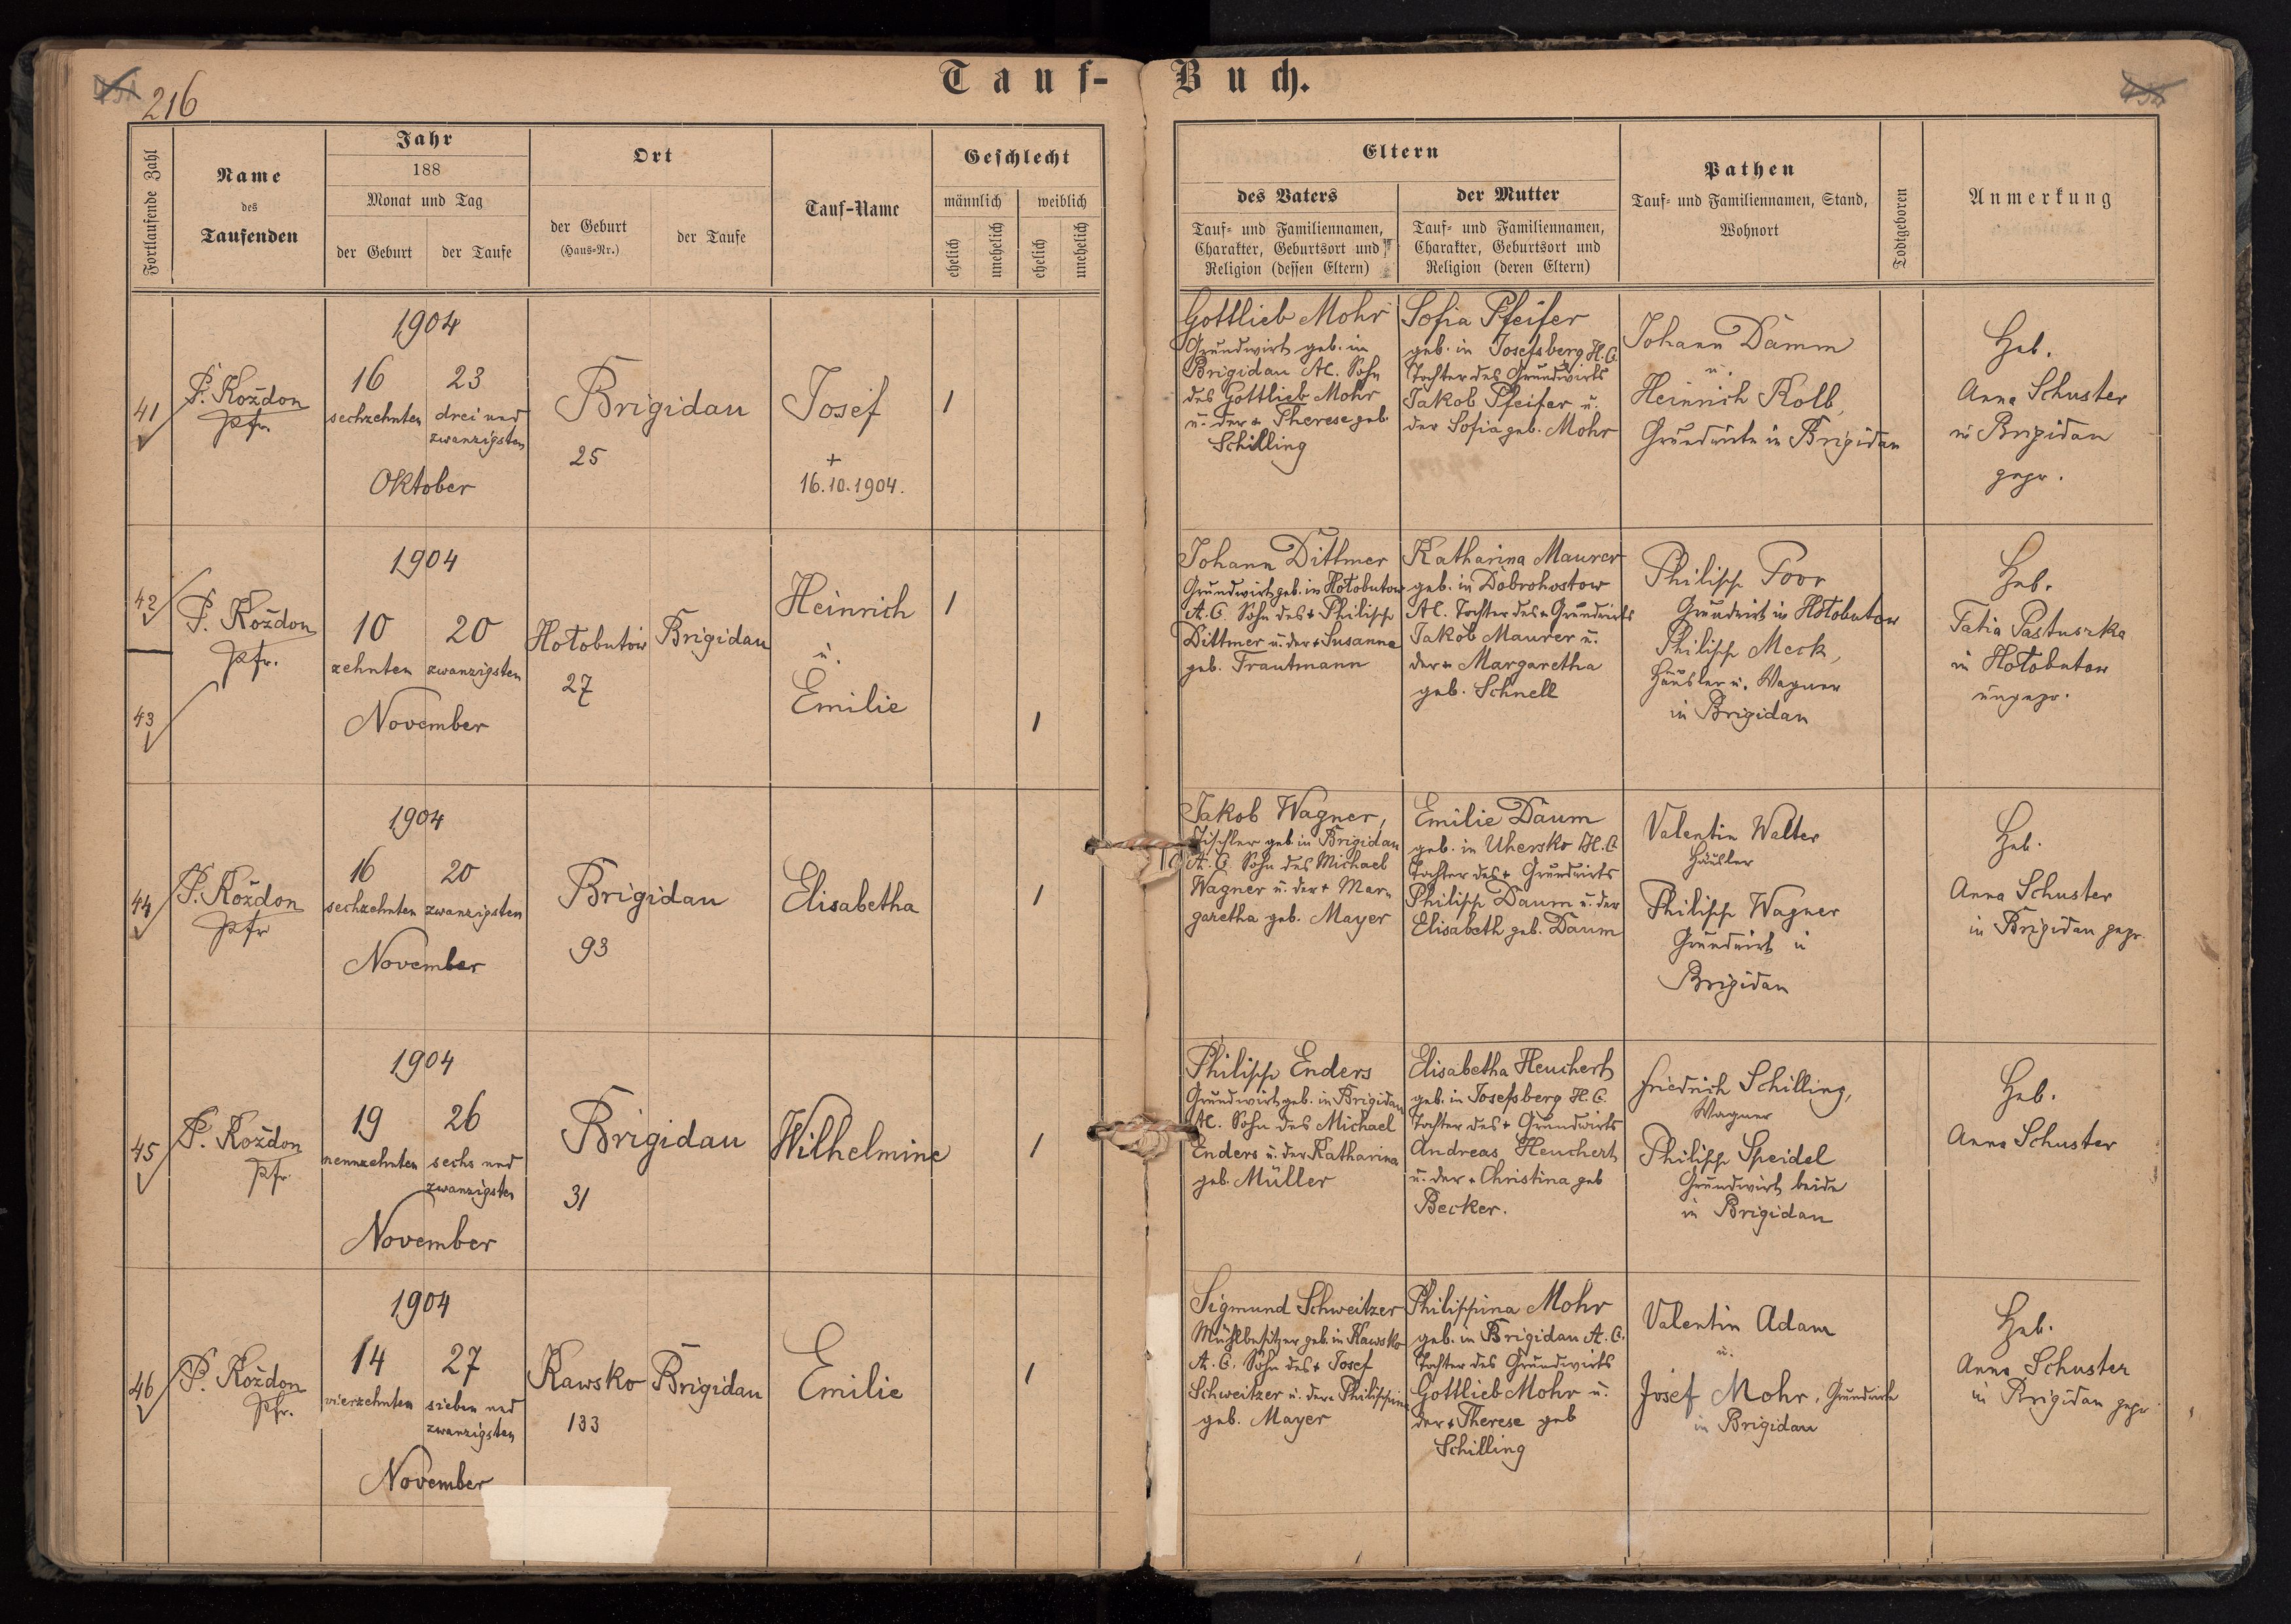 216
Tauf-Buch.
Fortlaufende Zahl
Name
des
Taufenden
Jahr
188
Monat und Tag
der Geburt
der Taufe
Ort
der Geburt
(Haus-Nr.)
der Taufe
Tauf-Name
Geschlecht
männlich
weiblich
ehelich
unehelich
ehelich
unehelich
Eltern
des Vaters
Tauf- und Familiennamen,
Charakter, Geburtsort und
Religion (dessen Eltern)
der Mutter
Tauf- und Familiennamen,
Charakter, Geburtsort und
Religion (deren Eltern)
Pathen
Tauf- und Familiennamen, Stand,
Wohnort
Todtgeboren
Anmerkung
41
P. Koždon
Pfr.
1904
16
sechzehnten
23
drei und
zwanzigsten
Oktober
Brigidau
25
Josef
+
16.10.1904.
1
Gottlieb Mohr
Grundwirt geb. in
Brigidau AC. Sohn
des Gottlieb Mohr
u. der + Therese geb.
Schilling
Sofia Pfeifer
geb. in Josefsberg H.C.
Tochter des Grundwirts
Jakob Pfeifer u.
der Sofia geb. Mohr
Johann Damm
u.
Heinrich Kolb,
Grundwirte in Brigidau
Heb.
Anna Schuster
in Brigidau
gepr.
42
43
P. Koždon
Pfr.
1904
10
zehnten
20
zwanzigsten
November
Hołobutów
27
Brigidau
Heinrich
u.
Emilie
1
1
Johann Dittmer
Grundwirt geb. in Hołobutow
A.C. Sohn des + Philipp
Dittmer u. der + Susanna
geb. Trautmann
Katharina Maurer
geb. in Dobrohostow
AC. Tochter des + Grundwirts
Jakob Maurer u.
der + Margaretha
geb. Schnell
Philipp Poor
Grundwirt in Hołobutow
Philipp Meck,
Häusler u. Wagner
in Brigidau
Heb.
Tatia Pastuszka
in Hołobutow
ungepr.
44
P. Koždon
Pfr
1904
16
sechzehnten
20
zwanzigsten
November
Brigidau
93
Elisabetha
1
Jakob Wagner,
Tischler geb. in Brigidau
A.C. Sohn des Michael
Wagner u. der + Mar-
garetha geb. Mayer
Emilie Daum
geb. in Uhersko H.C
Tochter des + Grundwirts
Philipp Daum u. der
Elisabeth geb. Daum
Valentin Walter
Häusler
Philipp Wagner
Grundwirt in
Brigidau
Heb.
Anna Schuster
in Brigidau gepr.
45
P. Koždon
Pfr
1904
19
neunzehnten
26
sechs und
zwanzigsten
November
Brigidau
31
Wilhelmine
1
Philipp Enders
Grundwirt geb. in Brigidau
AC. Sohn des Michael
Enders u. der Katharina
geb. Müller
Elisabetha Heuchert
geb. in Josefsberg H.C.
Tochter des + Grundwirts
Andreas Heuchert
u. der + Christina geb
Becker.
Friedrich Schilling,
Wagner
Philipp Speidel
Grundwirt beide
in Brigidau
Heb.
Anna Schuster
46
P. Koždon
Pfr.
1904
14
vierzehnten
27
sieben und
zwanzigsten
November
Kawsko
133
Brigidau
Emilie
1
Sigmund Schweitzer
Mühlbesitzer geb. in Kawsko
A.C. Sohn des + Josef
Schweitzer u. der + Philippina
geb. Mayer
Philippina Mohr
geb. in Brigidau A.C.
Tochter des Grundwirts
Gottlieb Mohr u.
der + Therese geb
Schilling
Valentin Adam
u.
Josef Mohr, Grundwirte
in Brigidau
Heb.
Anna Schuster
in Brigidau gepr.